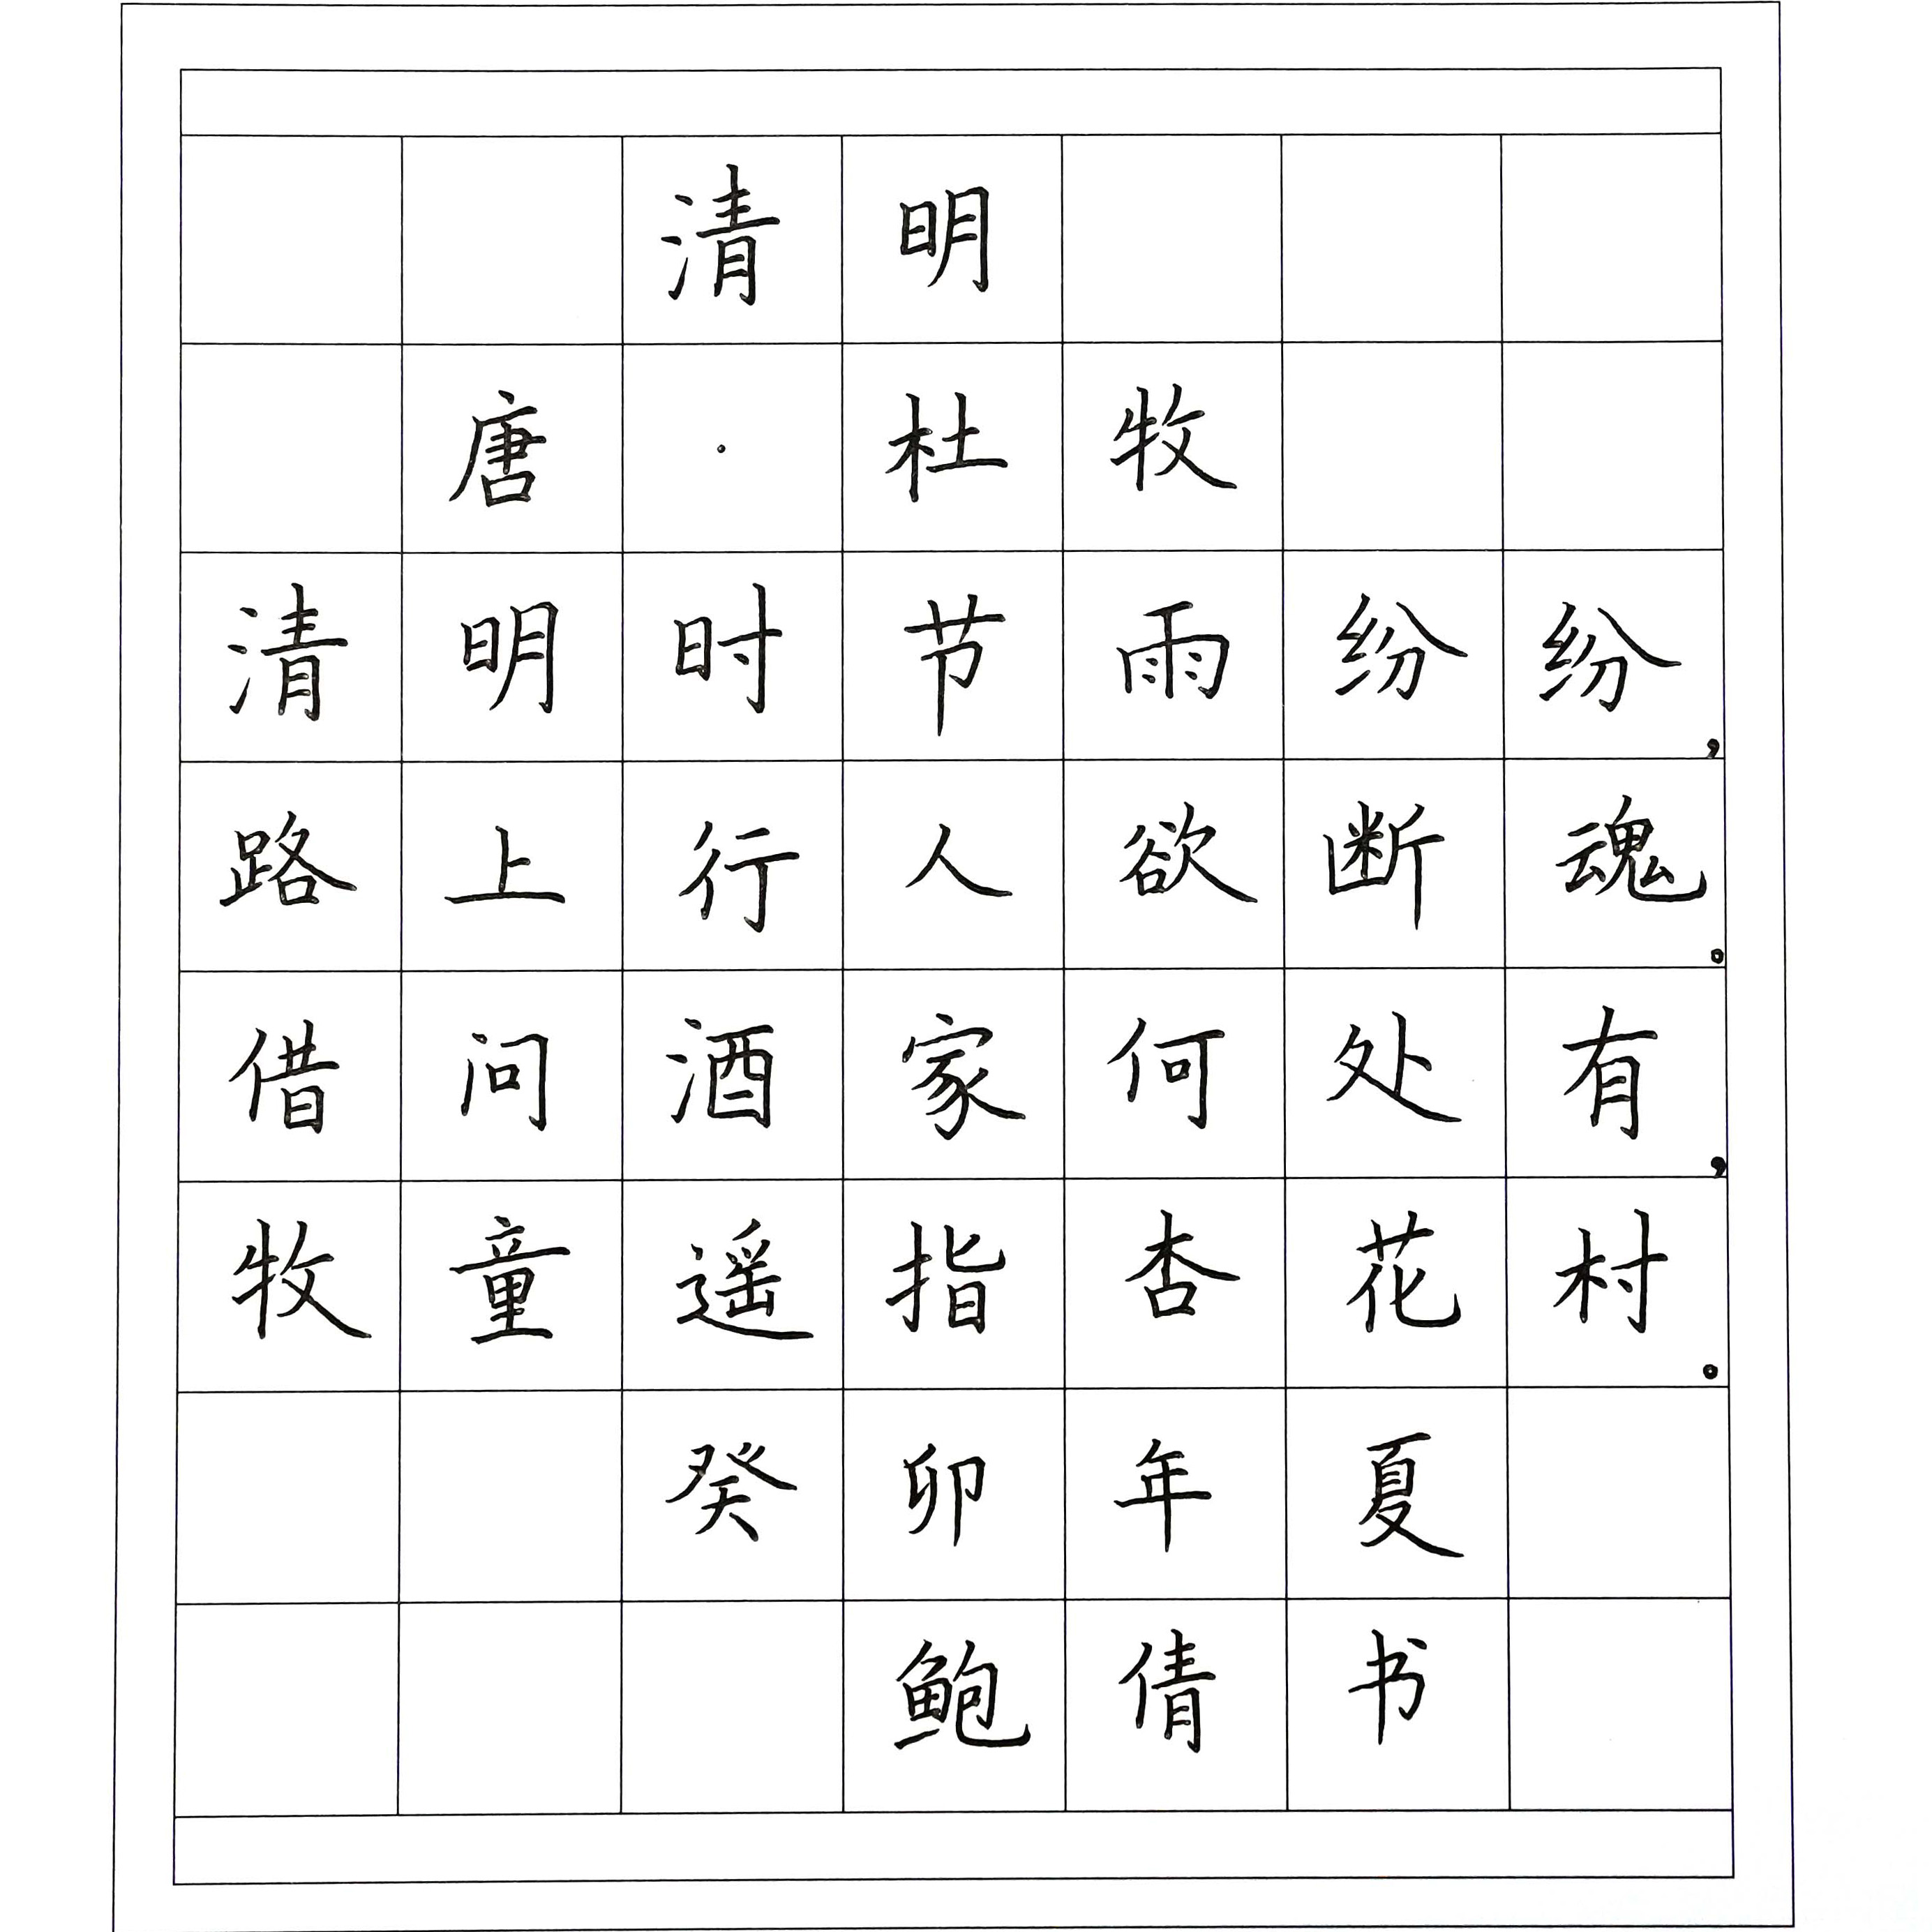 清明
唐·杜牧
清明时节雨纷纷,
路上行人欲断魂。
借问酒家何处有,
牧童遥指杏花村。
癸卯年夏
鲍倩书